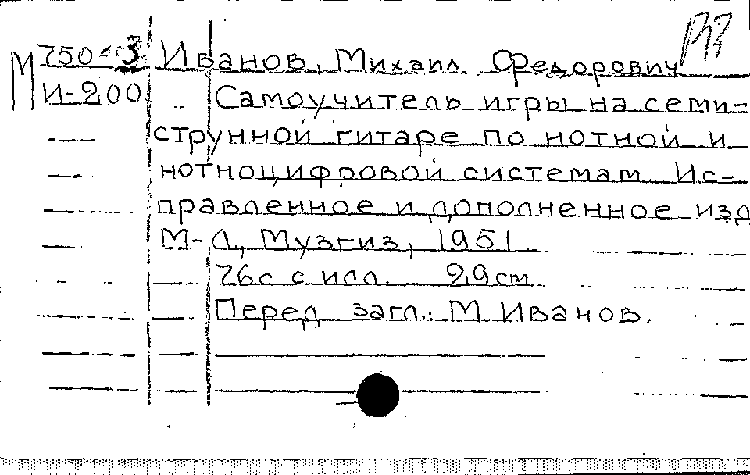 М 750-3 Иванов, Михаил Федорович
И-200 Самоучитель игры на семи-
струнной гитаре по нотной и
нотноцифровой системам. Ис-
правленное и дополненное изд
М-Л, Музгиз, 1951.
76с с илл. 29см
Перед загл.: М Иванов.